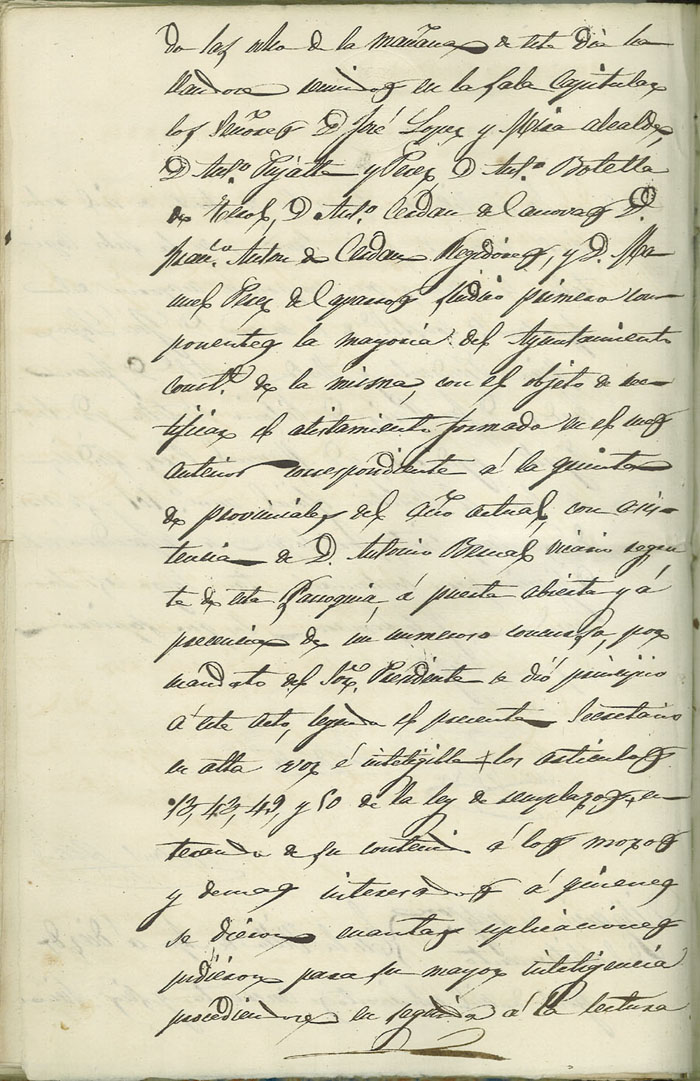 do las ocho de la mañana de este dia ha
llandose reunidos en la sala Capitular
los Señores D. José Lopez y Mira alcalde,
D. Ant.º y Perez, D. Ant.º Botella
de Terol, D. Ant.º Cerdan de Canovas D.
Fran.co Anton de Cerdan Regidores, y D. Ma
nuel Perez de Caparros sindico primero com
ponentes la mayoria del Ayuntamiento
const.l de la misma, con el objeto de rec-
tificar el alistamiento formado en el mes
anterior correspondiente á la quinta
de provinciales del año actual, con asis-
tencia de D. Antonio Bernal vicario regen
te de esta Parroquia, á puerta abierta y á
precencia de un numeroso concurso, por
mandato del Sor. Presidente se dió principio
á este acto, leyendo el presente Secretario
en alta voz é inteligible los articulos
13, 43, 49, y 50 de la ley de remplazos, en
terando de su contenido á los mozos
y demas interesados á quienes
se dieron cuantas esplicaciones
pidieron para su mayor inteligencia
procediendose en seguida á la lectura